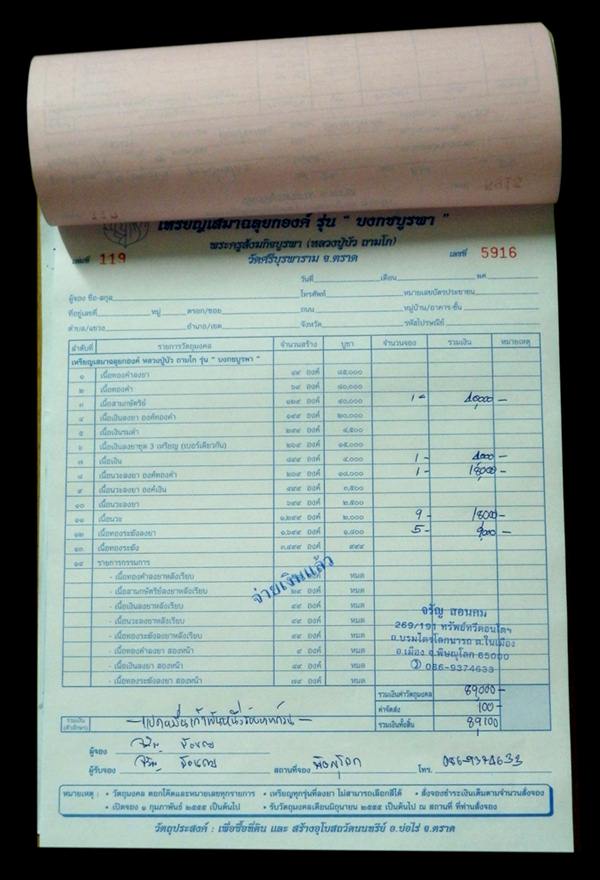 เหรียญเสมาฉลุยกองค์ รุ่น " บงกชบูรพา "
พระครูสังฆกิจบูรพา (หลวงปู่บัว ถามโก)
เล่มที่ 119 วัดศรีบุรพาราม จ.ตราด เลขที่ 5916
วันที่ เดือน พศ.
ผู้จอง ชื่อ-สกุล โทรศัพท์ หมายเลขบัตรประชาชน
ที่อยู่เลขที่ หมู่ ตรอก/ซอย ถนน หมู่บ้าน/อาคาร-ชั้น
ตำบล/แขวง อำเภอ/เขต จังหวัด รหัสไปรษณีย์
ลำดับที่ รายการวัตถุมงคล จำนวนสร้าง บูชา จำนวนจอง รวมเงิน หมายเหตุ
เหรียญเสมาฉลุยกองค์ หลวงปู่บัว ถามโก รุ่น " บงกชบูรพา "
๑ เนื้อทองคำลงยา องค์
๒ เนื้อทองคำ องค์
๓ เนื้อสามกษัตริย์ องค์ ๔๐,๐๐๐ 1- 40,000 -
๔ เนื้อเงินลงยา องค์ทองคำ องค์ ๒๐,๐๐๐
๕ เนื้อเงินรมดำ องค์ ๔,๕๐๐
๖ เนื้อเงินลงยาชุด 3 เหรียญ (เบอร์เดียวกัน) องค์ ๑๕,๐๐๐
๗ เนื้อเงิน องค์ ๔,๐๐๐ 1- 4000 -
๘ เนื้อนวะลงยา องค์ทองคำ องค์ ๑๘,๐๐๐ 1- 18,000 -
๙ เนื้อนวะลงยา องค์เงิน องค์ ๓,๕๐๐
๑๐ เนื้อนวะลงยา องค์ ๒,๕๐๐
๑๑ เนื้อนวะ ๑,๒๙๙ องค์ ๒,๐๐๐ 9- 18,000 -
๑๒ เนื้อทองระฆังลงยา ๑,๖๙๙ องค์ ๑,๘๐๐ 5- 9,000 -
๑๓ เนื้อทองระฆัง ๓,๙๙๙ องค์ ๙๙๙
๑๔ รายการกรรมการ
- เนื้อทองคำลงยาหลังเรียบ องค์ หมด
- เนื้อสามกษัตริย์ลงยาหลังเรียบ ๒๙ องค์ หมด
- เนื้อเงินลงยาหลังเรียบ ๔๙ องค์ หมด
- เนื้อนวะลงยาหลังเรียบ องค์ หมด
- เนื้อทองระฆังลงยาหลังเรียบ องค์ หมด
- เนื้อทองคำลงยา สองหน้า ๙ องค์ หมด
- เนื้อเงินลงยา สองหน้า องค์ หมด
- เนื้อทองระฆังลงยา สองหน้า ๗๙ องค์ หมด
จ่ายเงินแล้ว
จรัญ สอนคม
269/191 ทรัพย์ทวีคอนโดฯ
ถ.บรมไตรโลกนารถ ต.ในเมือง
อ.เมือง จ.พิษณุโลก 65000
086-9374633
รวมเงินค่าวัตถุมงคล 89,000 -
ค่าจัดส่ง 100 -
รวมเงิน (ตัวอักษร) -แปดหมื่นเก้าพันหนึ่งร้อยบาทถ้วน- รวมเงินทั้งสิ้น 89,100
ผู้จอง
ผู้รับจอง สถานที่จอง พิษณุโลก โทร. 086-9374633
หมายเหตุ : • วัตถุมงคล ตอกโค้ดและหมายเลขทุกรายการ • เหรียญทุกรุ่นที่ลงยา ไม่สามารถเลือกสีได้ • สั่งจองชำระเงินเต็มตามจำนวนสั่งจอง
• เปิดจอง ๑ กุมภาพันธ์ ๒๕๕๕ เป็นต้นไป • รับวัตถุมงคลเดือนมิถุนายน ๒๕๕๕ เป็นต้นไป ณ สถานที่ ที่ท่านสั่งจอง
วัตถุประสงค์ : เพื่อซื้อที่ดิน และ สร้างอุโบสถวัดนนทรีย์ อ.บ่อไร่ จ.ตราด